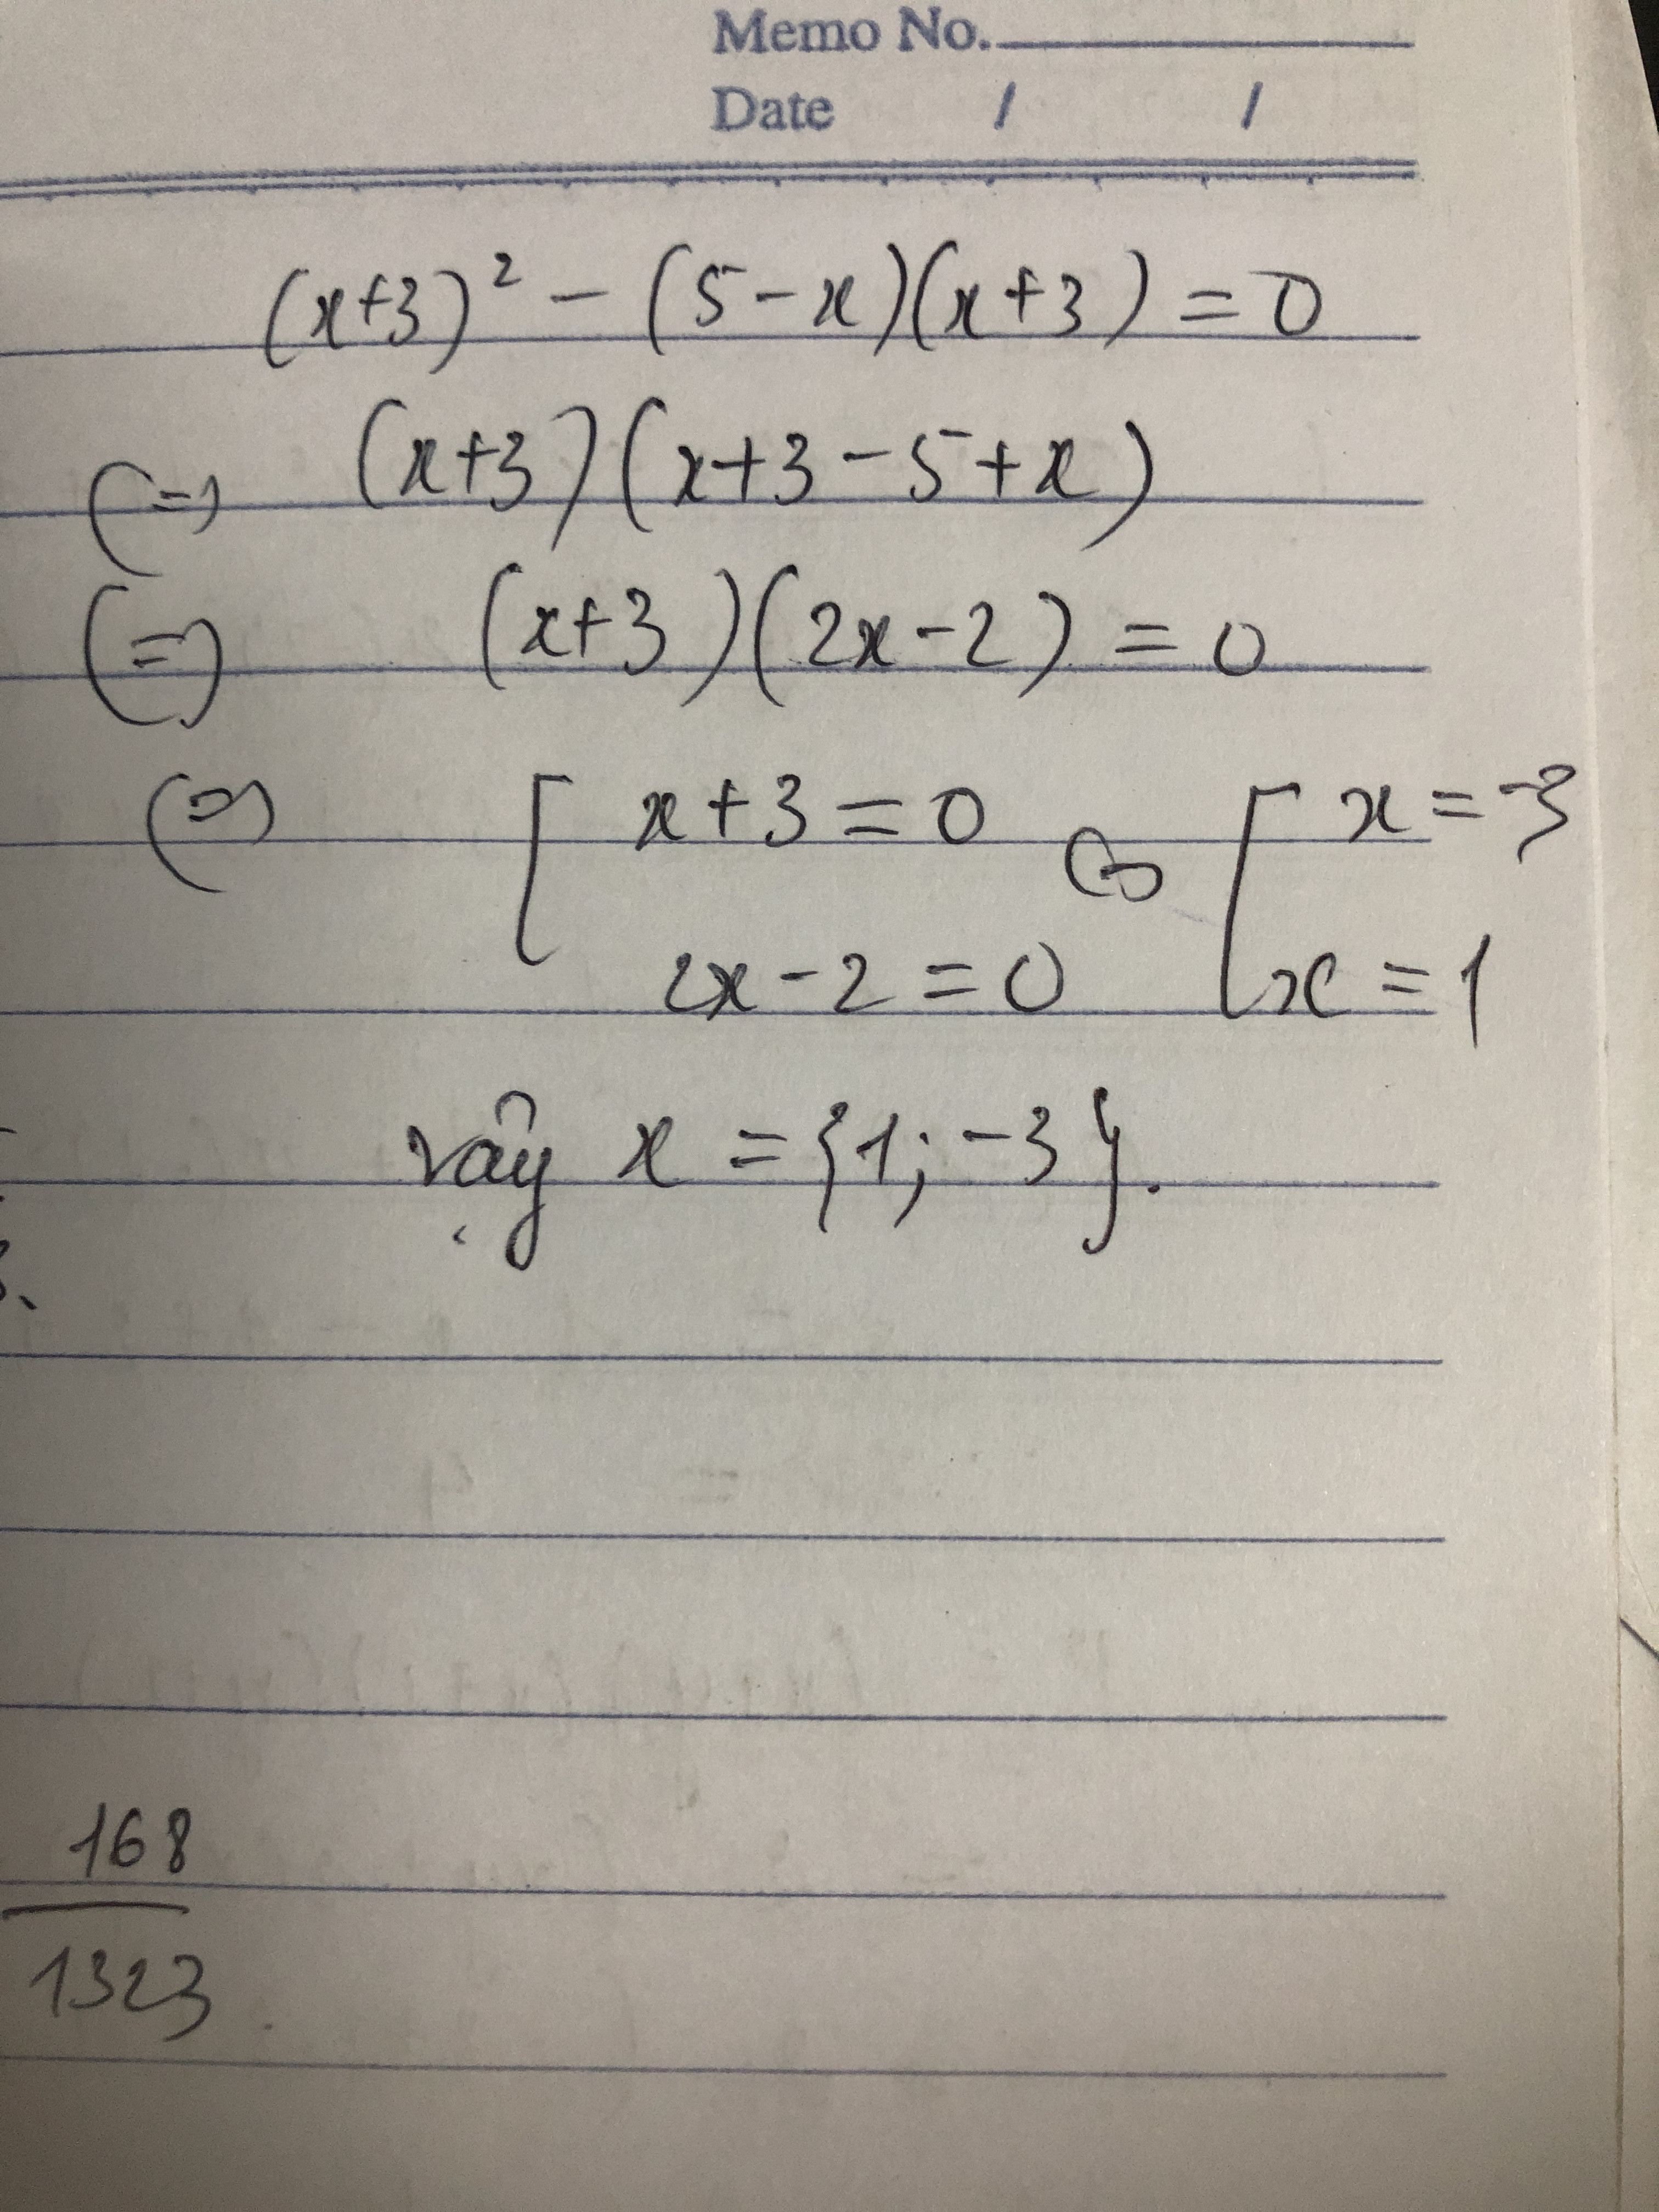 Memo No.
Date / /
(x+3)² - (5-x)(x+3) = 0
(=) (x+3)(x+3-5+x)
(=) (x+3)(2x-2) = 0
(=) [ x+3=0 (=) [ x = -3
2x-2=0 x = 1
vậy x = {1; -3}.
168
1323